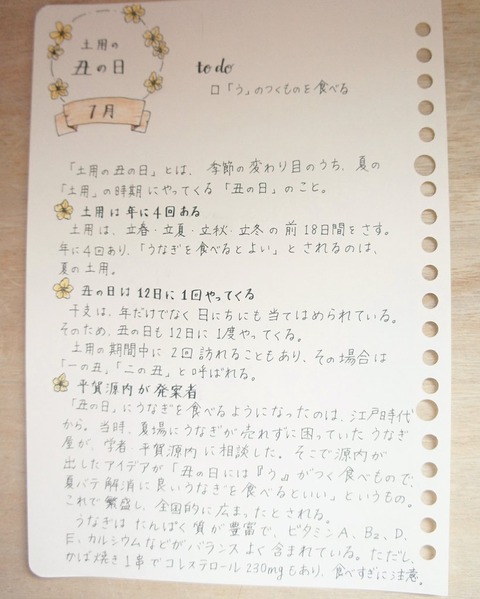 土用の
丑の日
7月
to do
□「う」のつくものを食べる
「土用の丑の日」とは、季節の変わり目のうち、夏の
「土用」の時期にやってくる「丑の日」のこと。
土用は年に4回ある
土用は、立春・立夏・立秋・立冬の前18日間をさす。
年に4回あり、「うなぎを食べるとよい」とされるのは、
夏の土用。
丑の日は12日に1回やってくる
干支は、年だけでなく日にちにも当てはめられている。
そのため、丑の日も12日に1度やってくる。
土用の期間中に2回訪れることもあり、その場合は
「一の丑」「二の丑」と呼ばれる。
平賀源内が発案者
「丑の日」にうなぎを食べるようになったのは、江戸時代
から。当時、夏場にうなぎが売れずに困っていたうなぎ
屋が、学者・平賀源内に相談した。そこで源内が
出したアイデアが「丑の日には『う』がつく食べもので、
夏バテ解消に良いうなぎを食べるといい」というもの。
これで繁盛し、全国的に広まったとされる。
うなぎはたんぱく質が豊富で、ビタミンA、B₂、D、
E、カルシウムなどがバランスよく含まれている。ただし、
かば焼き1串でコレステロール230mgもあり、食べすぎに注意。